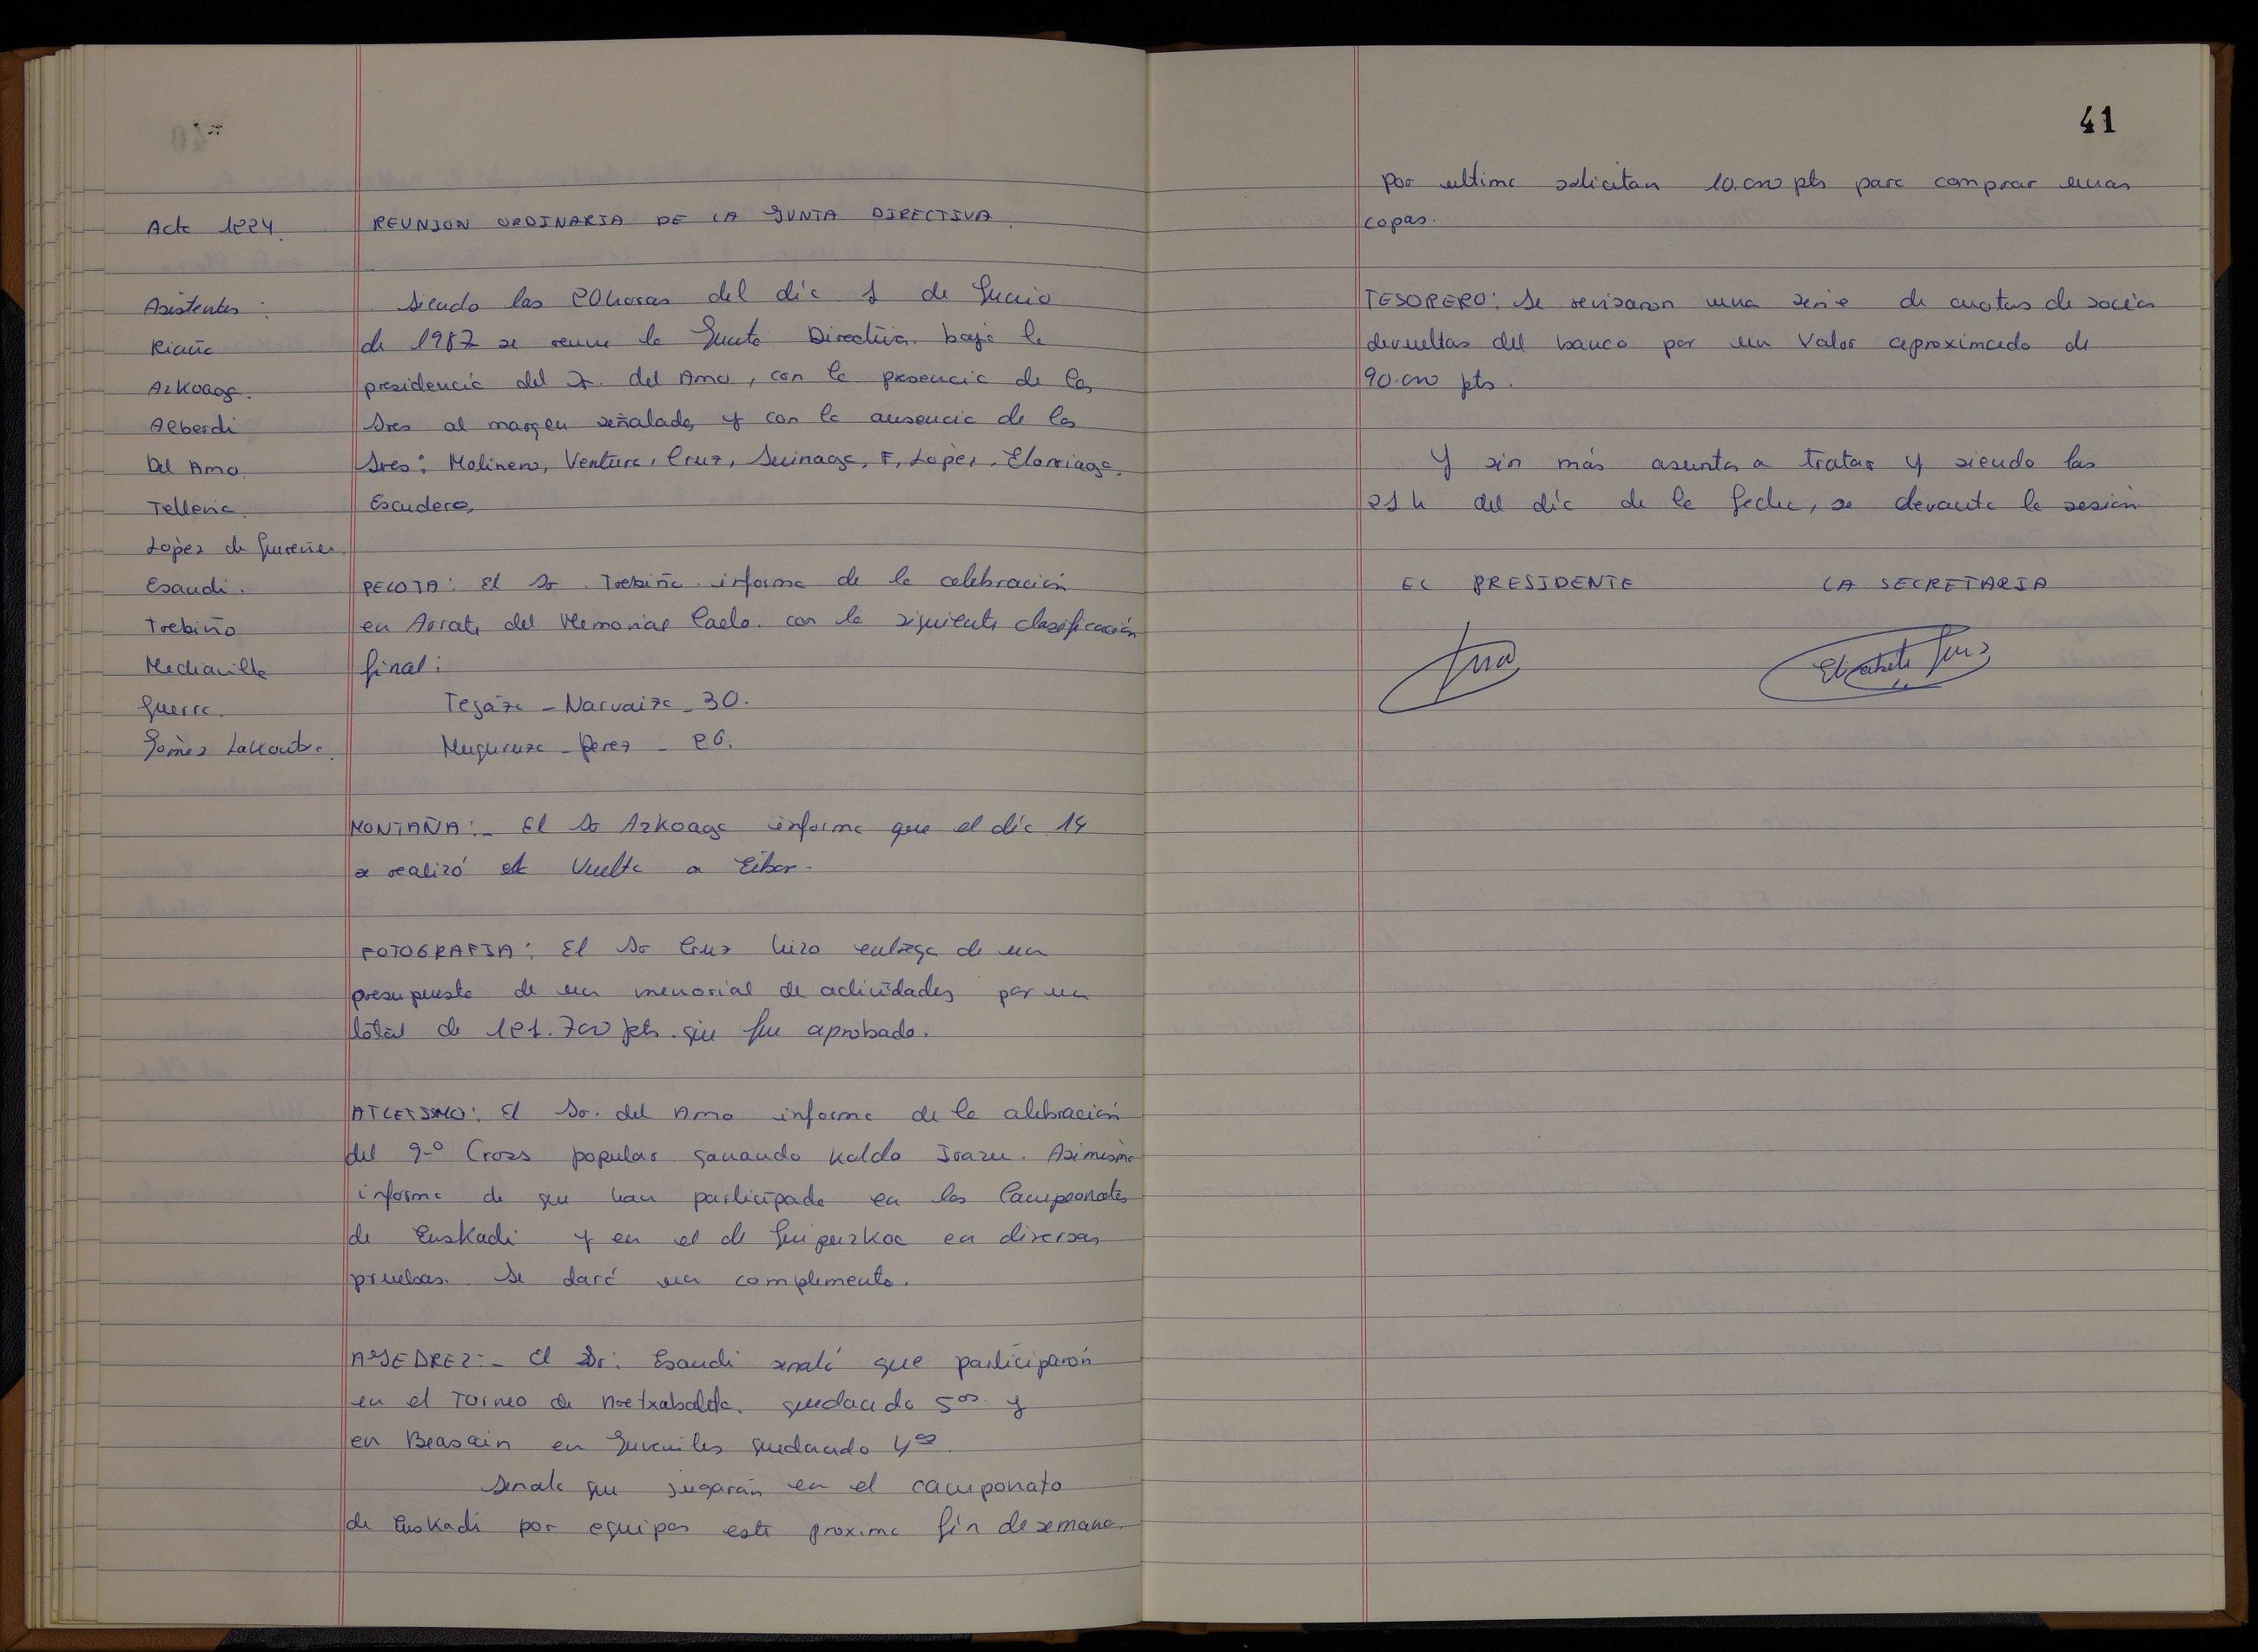 Acta 1224.
REUNION ORDINARIA DE LA JUNTA DIRECTIVA.
Asistentes:
Riaño
Azkoaga.
Alberdi
Del Amo.
Telleria.
Lopez de Guereñu.
Esaudi.
Trebiño
Mediavilla
Guerra.
Gomez Lakontra.
Siendo las 20 horas del día 1 de Junio
de 1987 se reune la Junta Directiva. bajo la
presidencia del Sr. del Amo, con la presencia de los
Sres al margen señalados y con la ausencia de los
Sres: Molinero, Ventura, Cruz, Suinaga, F. Lopez, Elorriaga,
Escudero,
PELOTA: El Sr. Trebiño informa de la celebración
en Arrate del Memorial Caelo. con la siguiente clasificación
final:
Narvaiza - 30.
Muguruza - Perez - 26.
MONTAÑA:- El Sr Azkoaga informa que el día 14
se realizó la Vuelta a Eibar.
FOTOGRAFIA: El Sr Cruz hizo entrega de un
presupuesto de un memorial de actividades por un
total de 121.700 pts. que fue aprobado.
ATLETISMO: El Sr. del Amo informa de la celebración
del 9º Cross popular ganando Koldo Irazu. Asimismo
informa de que han participado en los Campeonatos
de Euskadi y en el de Guipuzkoa en diversas
pruebas. Se dará un complemento.
AJEDREZ:- El Sr. Esaudi señaló que participaron
en el Torneo de quedando 5os. y
en Beasain en Juveniles quedando 4os.
Senala que jugarán en el camponato
de Euskadi por equipos este proximo fin de semana.
41
Por ultimo solicitan 10.000 pts para comprar unas
copas.
TESORERO: Se revisaron una serie de cuotas de socios
devueltas del banco por un valor aproximado de
90.000 pts.
Y sin más asuntos a tratar y siendo las
21 h del día de la fecha, se levanta la sesión.
EL PRESIDENTE LA SECRETARIA